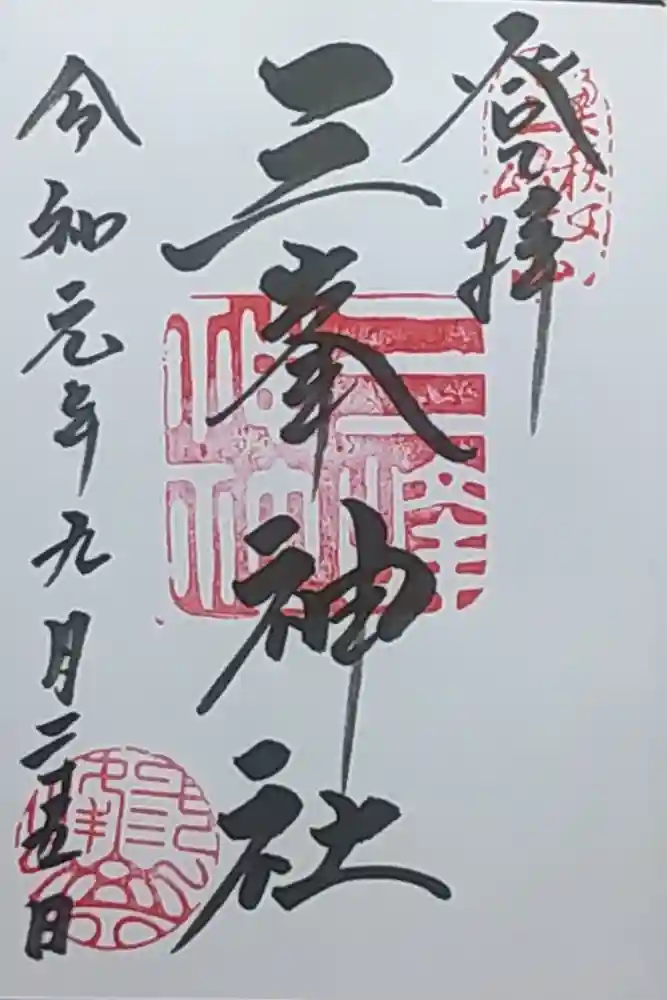 登拝
奥秩父
三峰山
三峯神社
令和元年九月二十五日